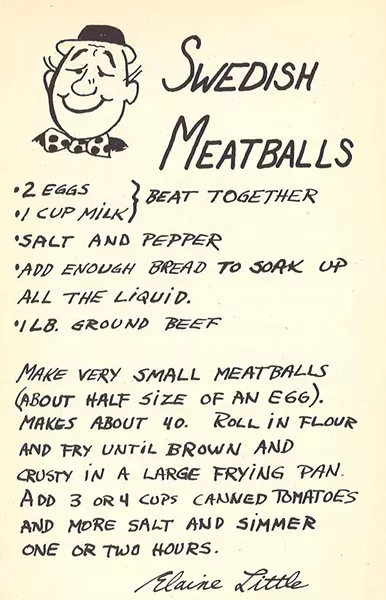 SWEDISH
MEATBALLS
•2 EGGS
•1 CUP MILK } BEAT TOGETHER
•SALT AND PEPPER
•ADD ENOUGH BREAD TO SOAK UP
ALL THE LIQUID.
•1 LB. GROUND BEEF
MAKE VERY SMALL MEATBALLS
(ABOUT HALF SIZE OF AN EGG).
MAKES ABOUT 40. ROLL IN FLOUR
AND FRY UNTIL BROWN AND
CRUSTY IN A LARGE FRYING PAN.
ADD 3 OR 4 CUPS CANNED TOMATOES
AND MORE SALT AND SIMMER
ONE OR TWO HOURS.
Elaine Little